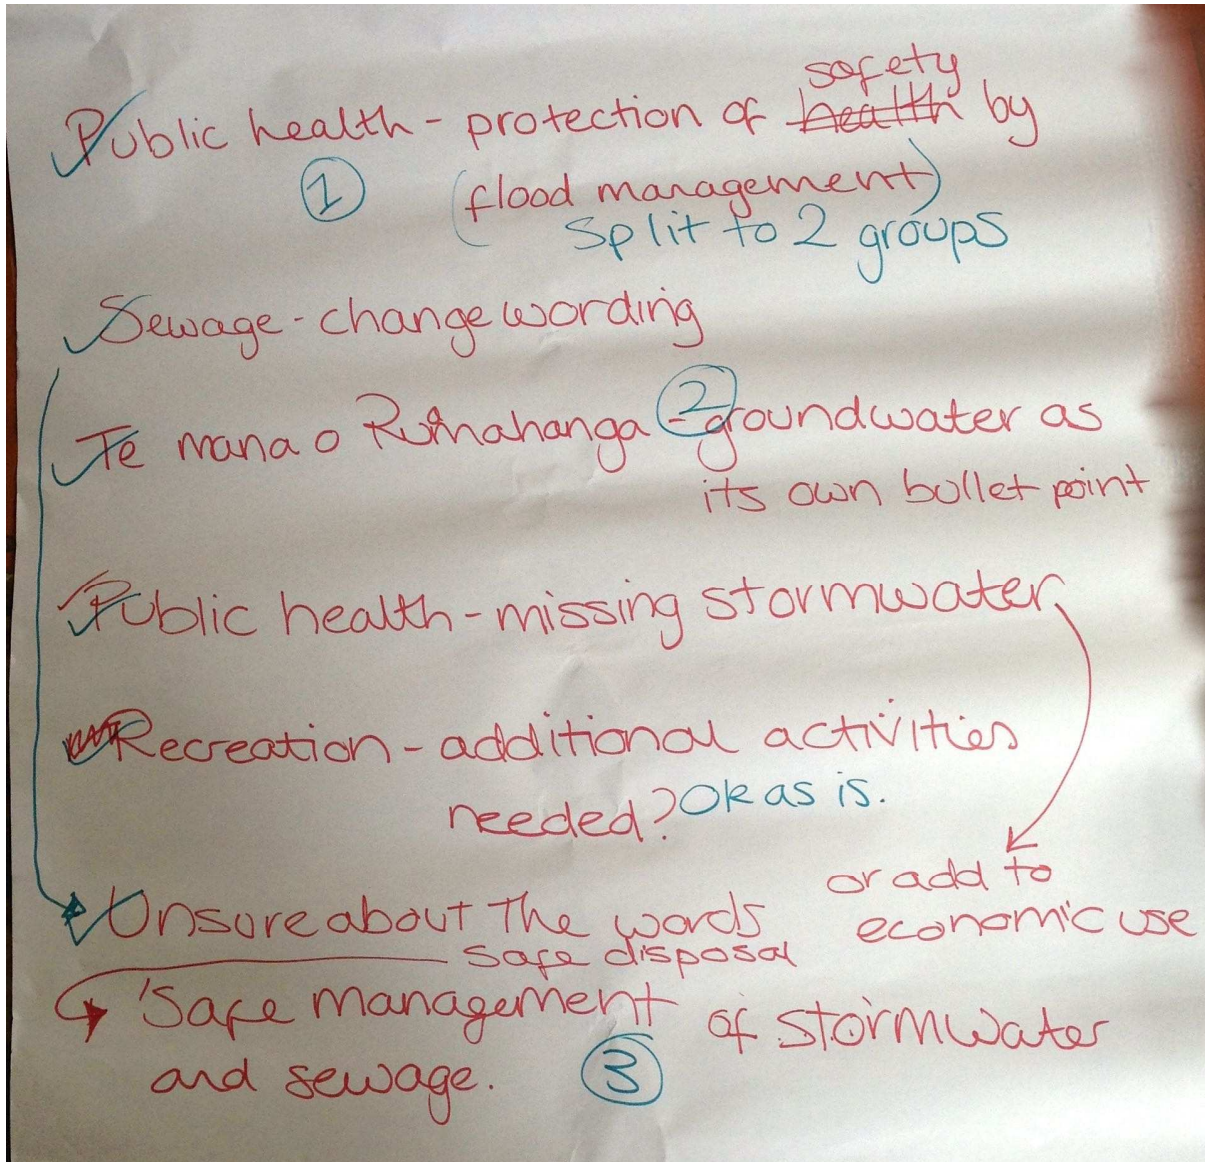 safety
Public health - protection of health by
1 (flood management)
Split to 2 groups
Sewage - change wording
Te mana o Ruamahanga - 2 groundwater as
its own bullet point
Public health - missing stormwater
Recreation - additional activities
needed? Ok as is.
or add to
economic use
Unsure about the words
safe disposal
'Safe management of stormwater
and sewage. 3